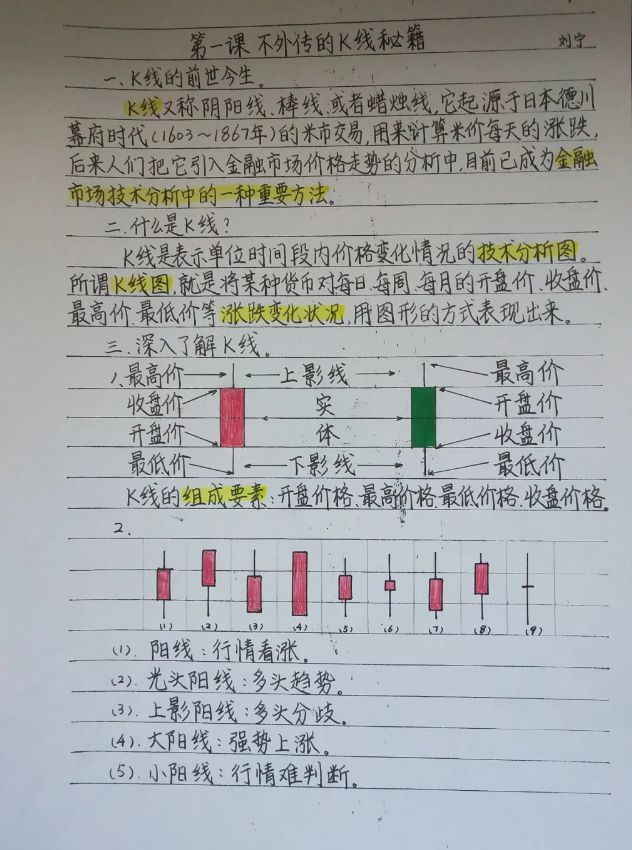 第一课 不外传的K线秘籍 刘宁
一、K线的前世今生。
K线又称阴阳线、棒线、或者蜡烛线,它起源于日本德川
幕府时代(1603~1867年)的米市交易,用来计算米价每天的涨跌,
后来人们把它引入金融市场价格走势的分析中,目前已成为金融
市场技术分析中的一种重要方法。
二、什么是K线?
K线是表示单位时间段内价格变化情况的技术分析图。
所谓K线图,就是将某种货币对每日、每周、每月的开盘价、收盘价、
最高价、最低价等涨跌变化状况,用图形的方式表现出来。
三、深入了解K线。
1、最高价 上影线 最高价
收盘价 实 开盘价
开盘价 体 收盘价
最低价 下影线 最低价
K线的组成要素:开盘价格、最高价格、最低价格、收盘价格。
2、
(1) (2) (3) (4) (5) (6) (7) (8) (9)
(1). 阳线:行情看涨。
(2). 光头阳线:多头趋势。
(3). 上影阳线:多头分歧。
(4). 大阳线:强势上涨。
(5). 小阳线:行情难判断。